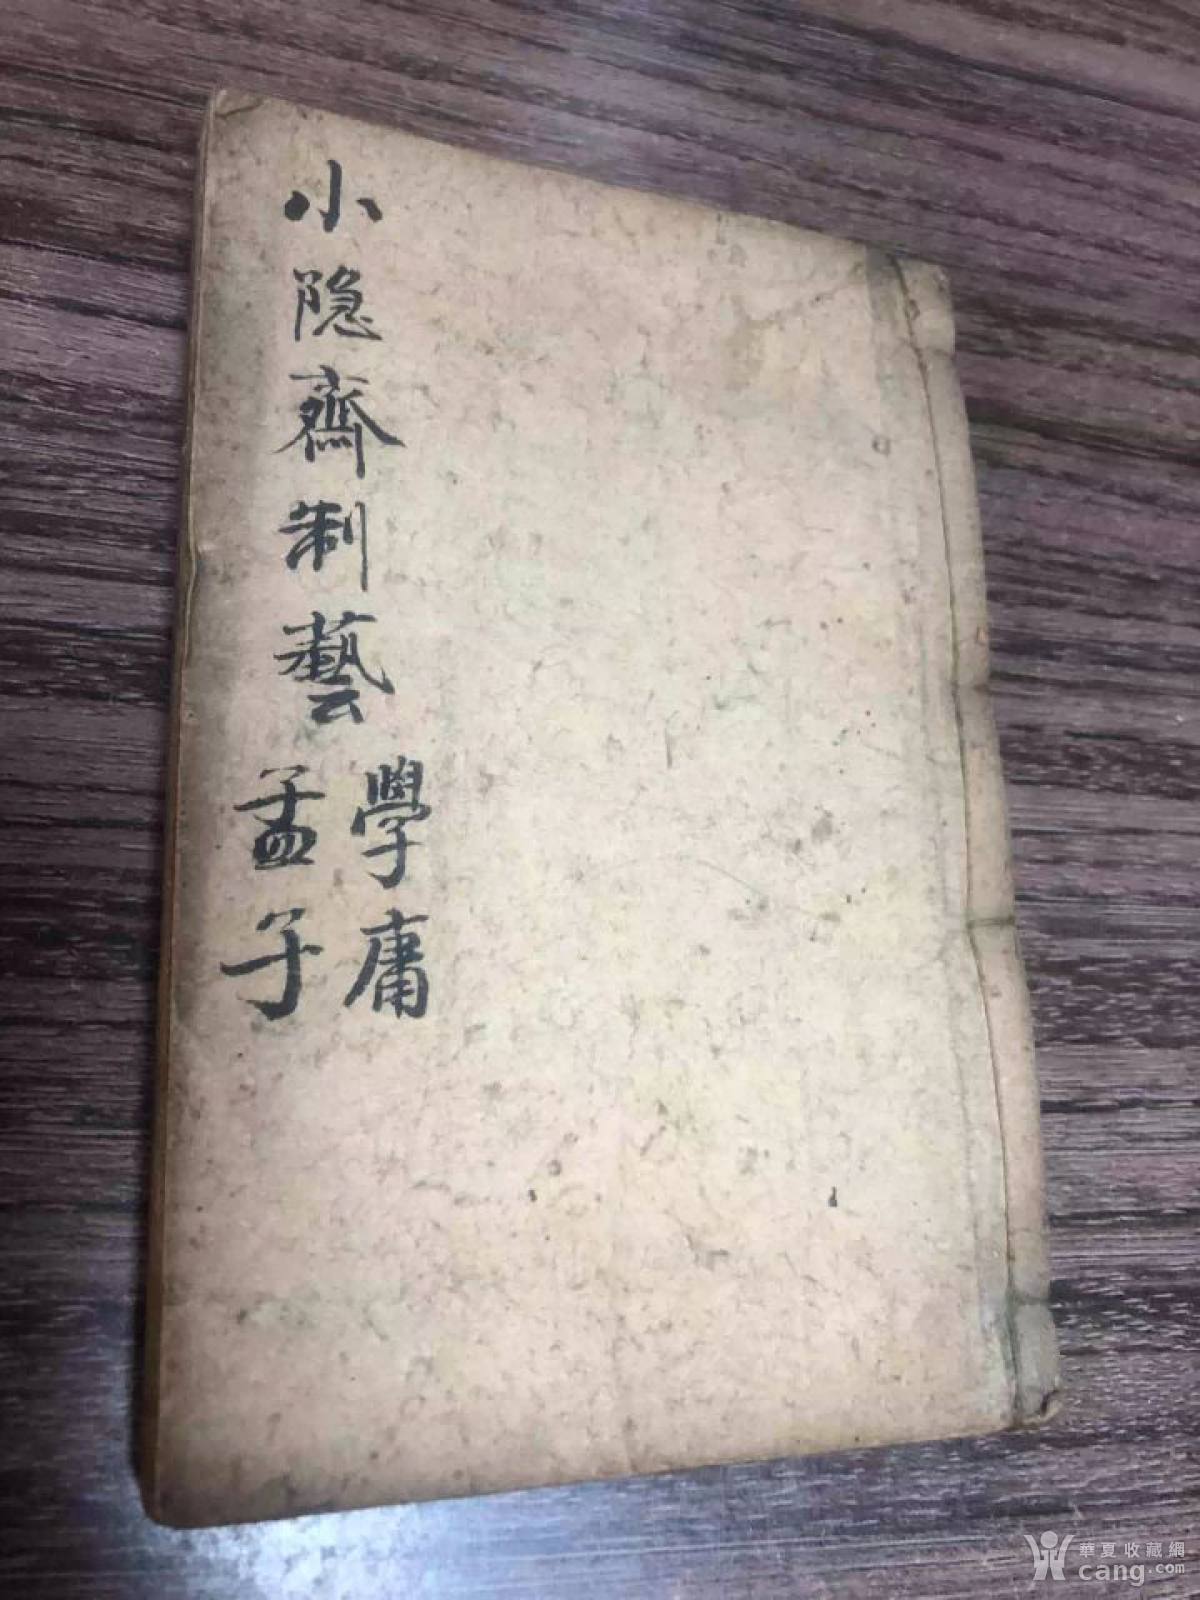 小隐齋制藝
學庸
孟子
華夏收藏網
cang.com